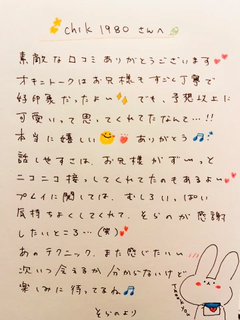 chik 1980 さんへ
素敵な口コミありがとうございます
オキニトークはお兄様もすごく丁寧で
好印象だったよ〜 でも、予想以上に
可愛いって思ってくれてたなんて…!!
本当に嬉しい ありがとう
話しやすさは、お兄様がず〜っと
ニコニコ接してくれてたのもあるよ〜
プレイに関しては、むしろいっぱい
気持ちよくしてくれて、そらのが感謝
したいところ…(笑)
あのテクニック、また感じたいい
次いつ会えるか分からないけど
楽しみに待ってるね
そらのより